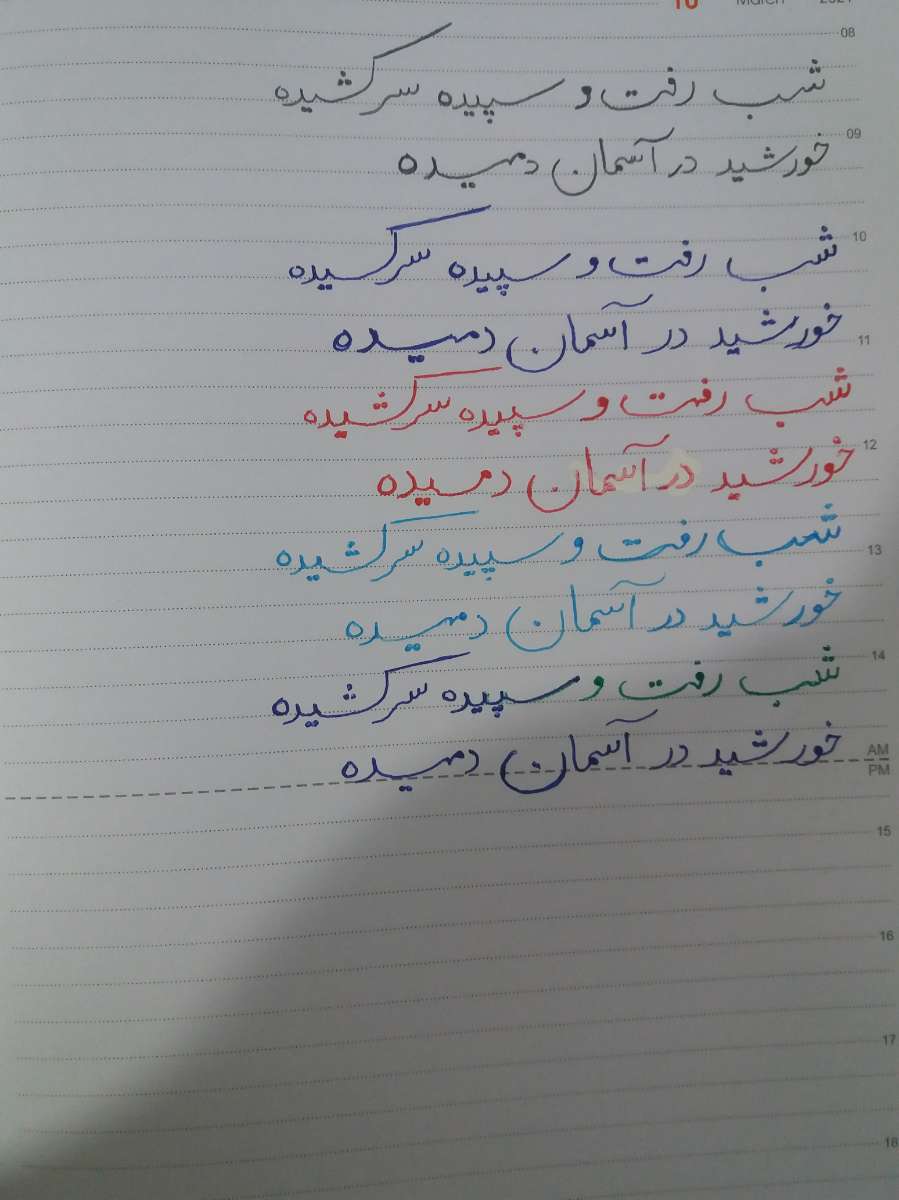 10 March 2021
08
شب رفت و سپیده سر کشیده
09
خورشید در آسمان دمیده
10
شب رفت و سپیده سر کسیده
خورشید در آسمان دمیده
11
شب رفت و سپیده سر کشیده
12
خورشید در آسمان دمیده
شب رفت و سپیده سر کشیده
13
خورشید در آسمان دمیده
14
شب رفت و سپیده سر کشیده
خورشید در آسمان دمیده
AM
PM
15
16
17
18